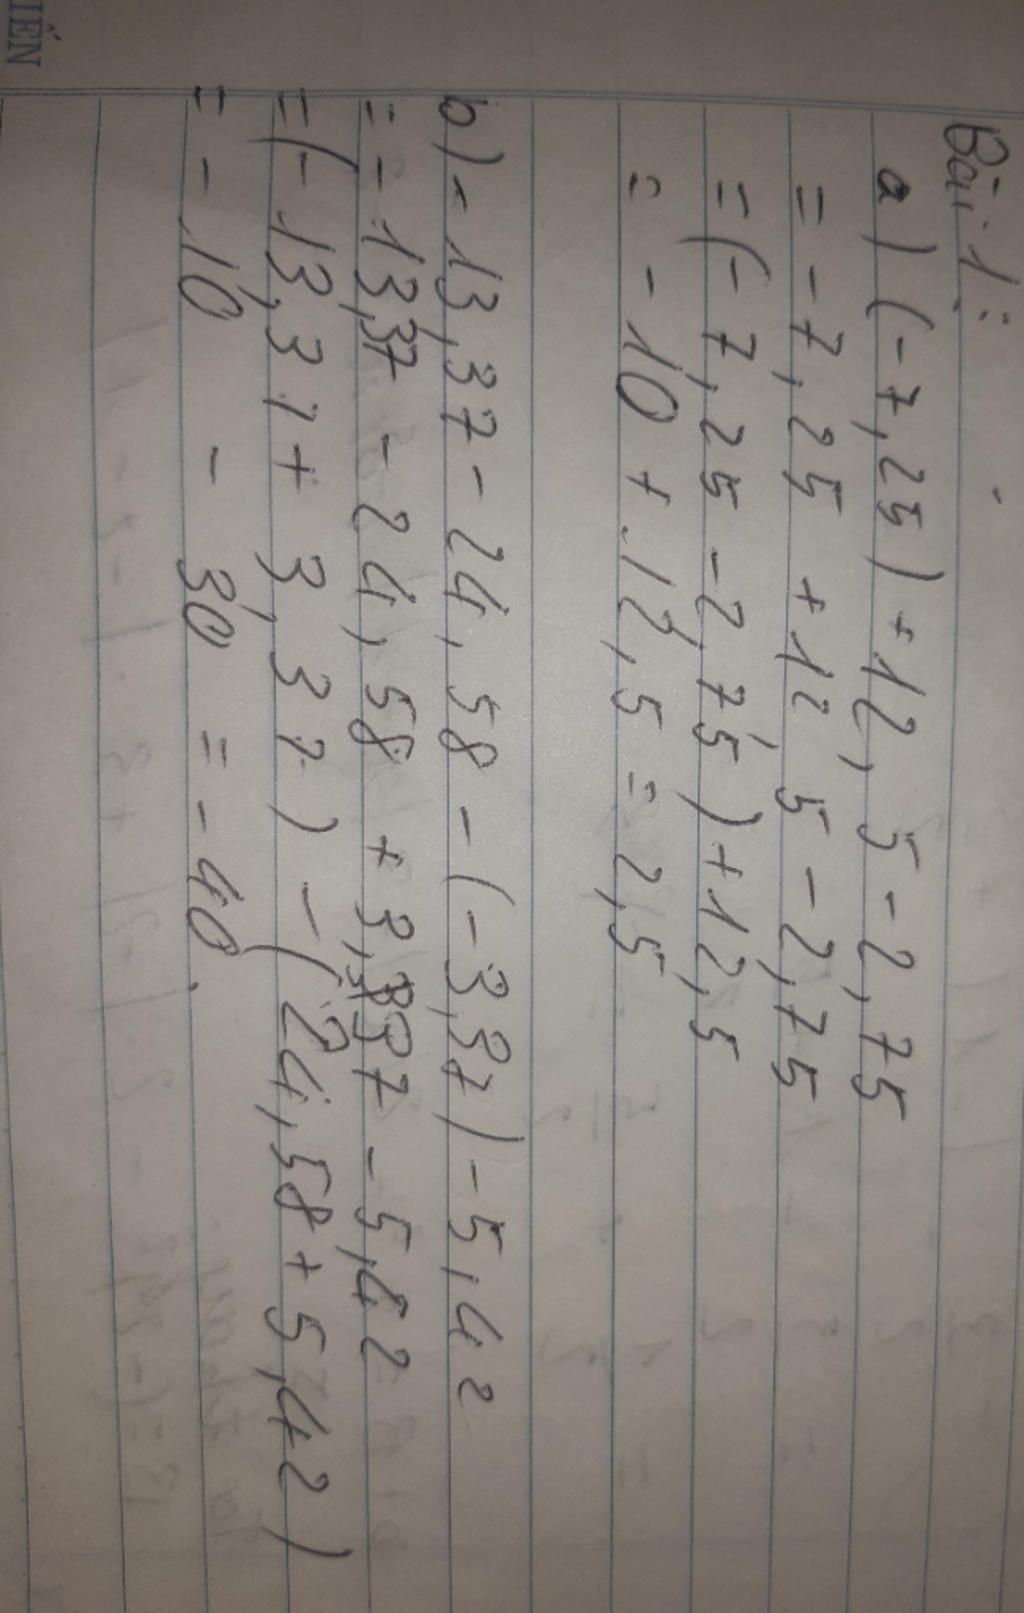 Bài 1:
a) (-7,25) + 12,5 - 2,75
= -7,25 + 12,5 - 2,75
= (-7,25 - 2,75) + 12,5
= -10 + 12,5 = 2,5
b) - 13,37 - 24,58 - (-3,37) - 5,42
= - 13,37 - 24,58 + 3,37 - 5,42
= (- 13,37 + 3,37) - (24,58 + 5,42)
= - 10 - 30 = - 40.
IẾN